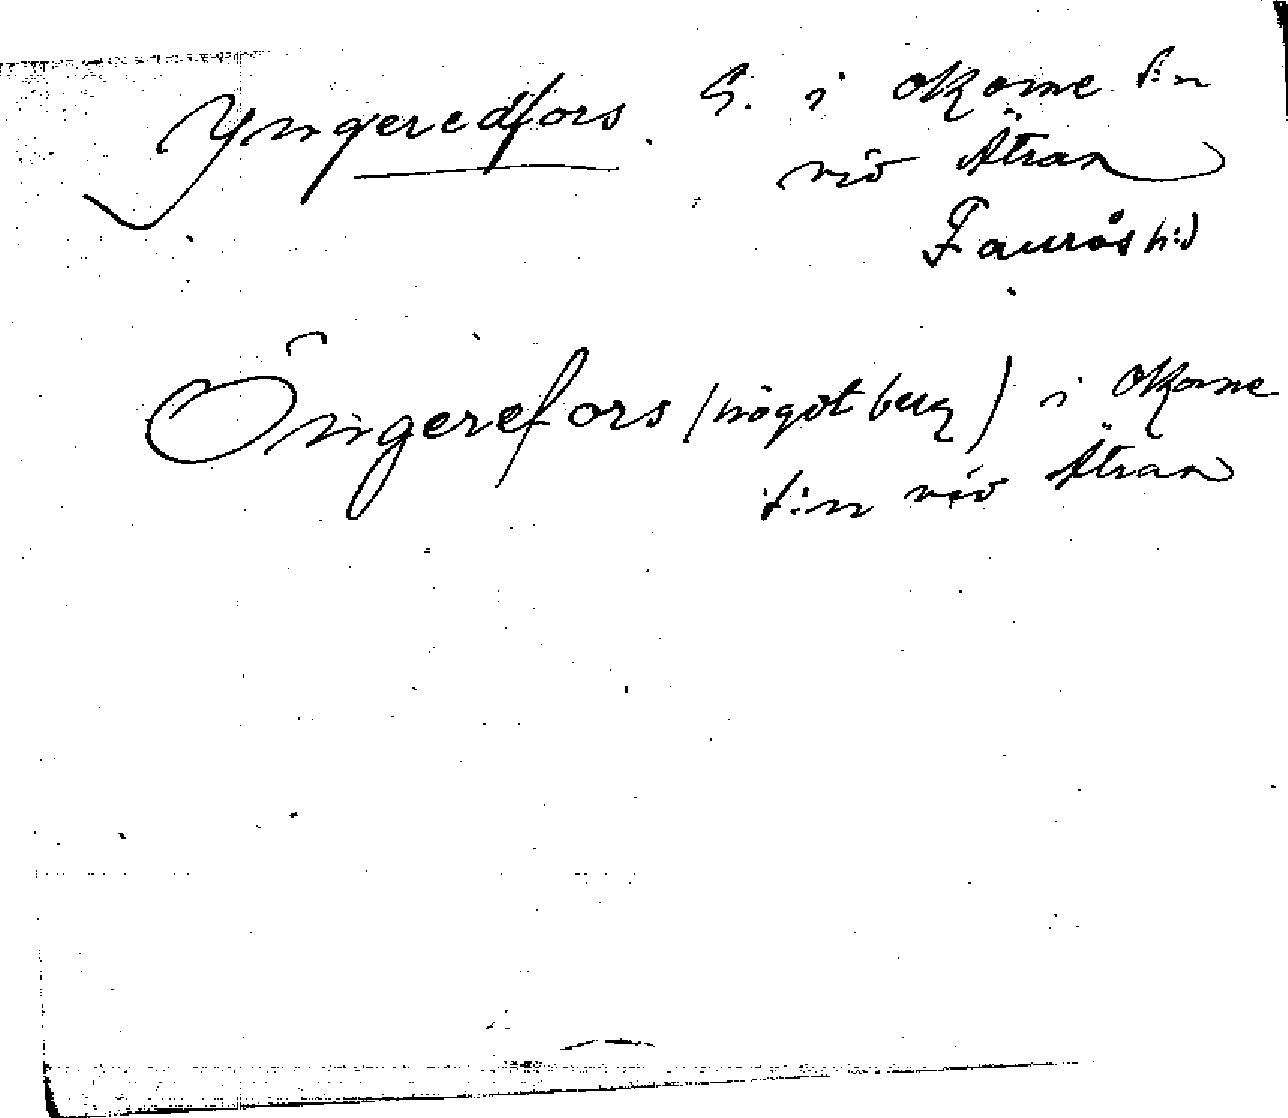 Yngeredfors. G. i Okome s:n
vid Ätran
Faurås h:d
Öngerefors (något berg) i Okome
s:n vid Ätran